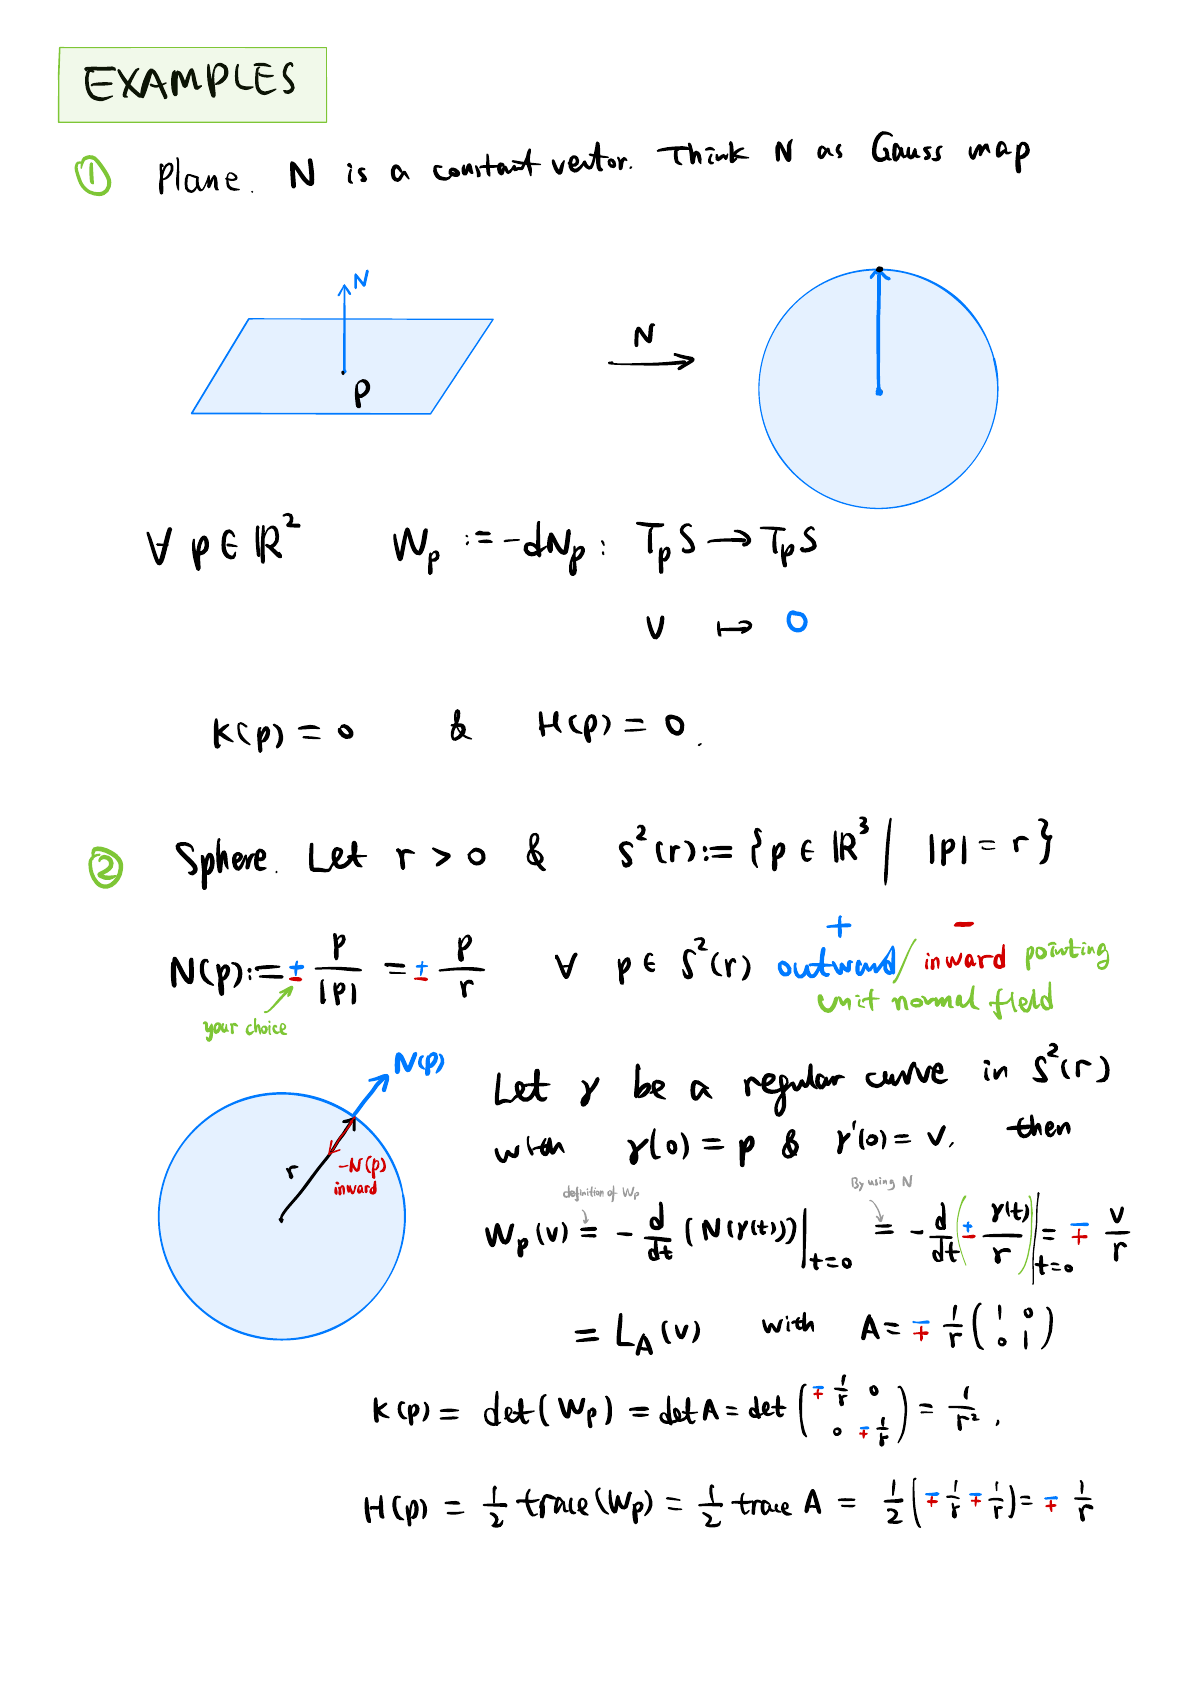 EXAMPLES
① Plane. N is a constant vector. Think N as Gauss map
N
N
p
∀ p ∈ ℝ² W_p := -dN_p : T_pS → T_pS
v ↦ 0
K(p) = 0 & H(p) = 0.
② Sphere. Let r > 0 & S²(r) := {p ∈ ℝ³ | |p| = r}
+ −
N(p) := ± p/|p| = ± p/r ∀ p ∈ S²(r) outward/inward pointing
unit normal field
your choice
N(p)
r
-N(p)
inward
Let γ be a regular curve in S²(r)
with γ(0) = p & γ'(0) = v, then
definition of W_p By using N
W_p(v) = - d/dt (N(γ(t)))|_{t=0} = - d/dt (± γ(t)/r)|_{t=0} = ∓ v/r
= L_A(v) with A = ∓ 1/r (1 0; 0 1)
K(p) = det(W_p) = det A = det (∓ 1/r 0; 0 ∓ 1/r) = 1/r².
H(p) = 1/2 trace(W_p) = 1/2 trace A = 1/2 (∓ 1/r ∓ 1/r) = ∓ 1/r